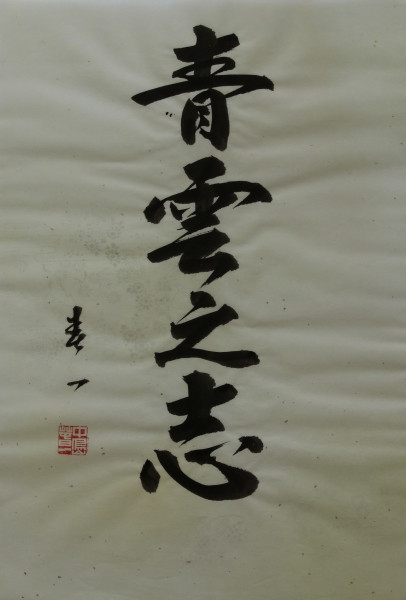 青雲之志
春一